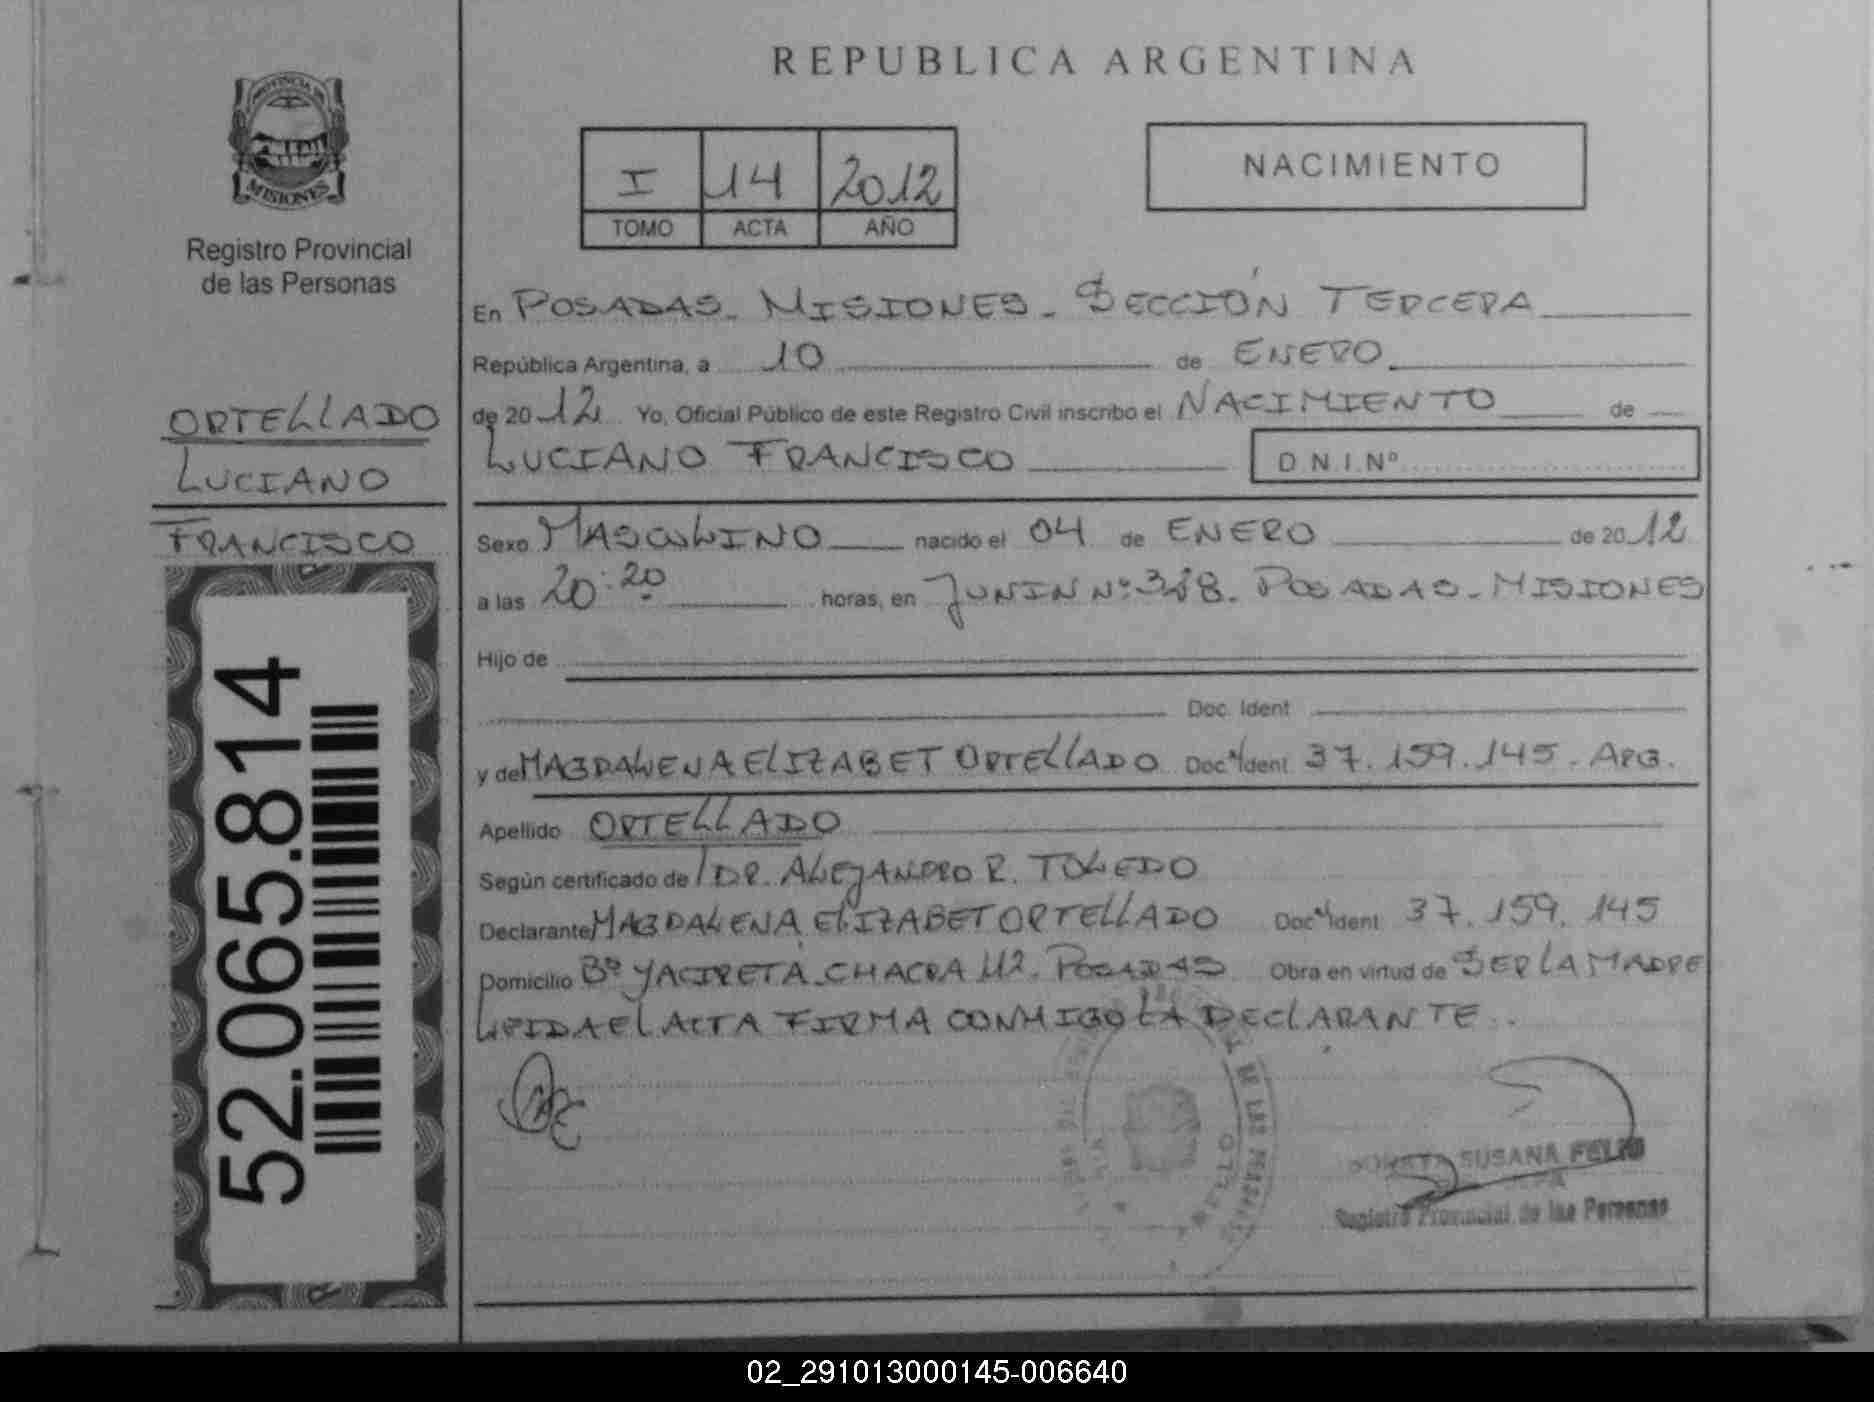 REPUBLICA ARGENTINA
PROVINCIA DE
MISIONES
Registro Provincial
de las Personas
I 14 2012
TOMO ACTA AÑO
NACIMIENTO
ORTELLADO
LUCIANO
FRANCISCO
52.065.814
En POSADAS - MISIONES - SECCIÓN TERCERA
República Argentina, a 10 de ENERO
de 2012 Yo, Oficial Público de este Registro Civil inscribo el NACIMIENTO de
LUCIANO FRANCISCO D.N.I.Nº
Sexo MASCULINO nacido el 04 de ENERO de 2012
a las 20:20 horas, en JUNIN Nº: POSADAS - MISIONES
Hijo de
Doc. Ident
y de MAGDALENA ELIZABET ORTELLADO Doc. Ident 37.159.145 - ARG.
Apellido ORTELLADO
Según certificado de DR. ALEJANDRO R. TOLEDO
Declarante MAGDALENA ELIZABET ORTELLADO Doc Ident 37.159.145
Domicilio Bº YACIRETA CHACRA 112. POSADAS Obra en virtud de SER LA MADRE
LEIDA EL ACTA FIRMA CONMIGO LA DECLARANTE.
DE LAS PERSONAS
SUSANA
Registro Provincial de las Personas
02_291013000145-006640